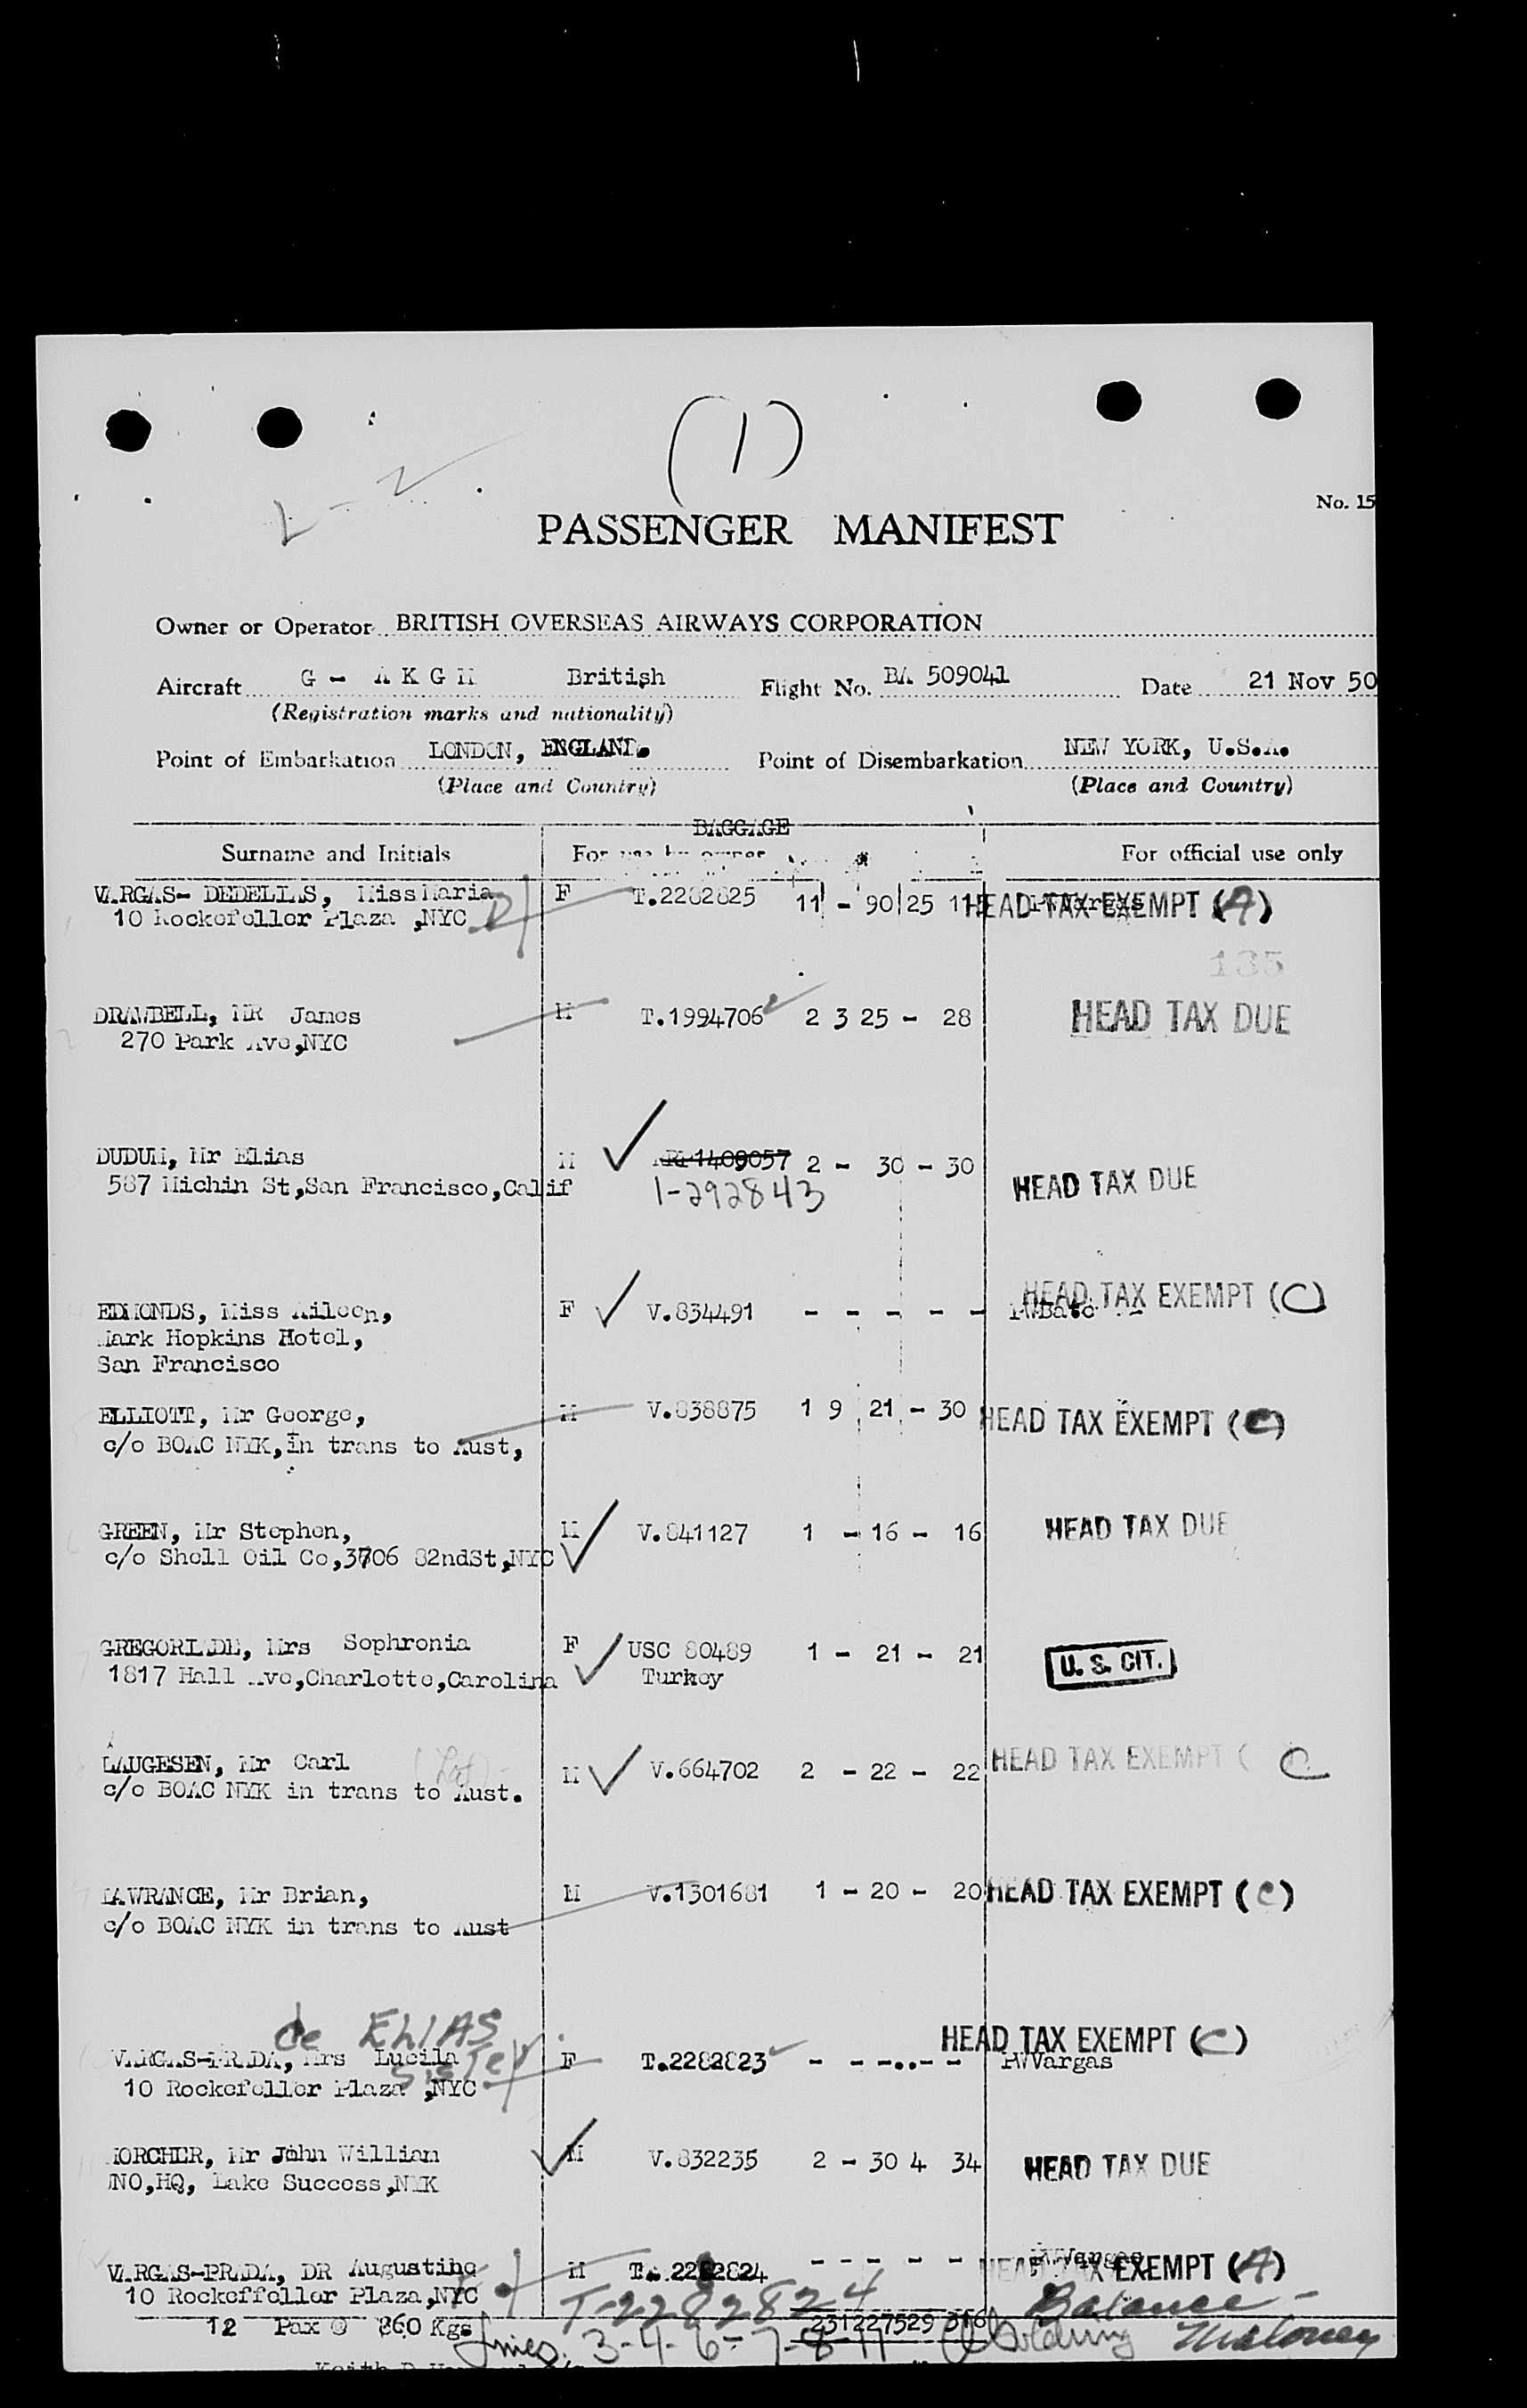 (1)
L - 2
No. 15
PASSENGER MANIFEST
Owner or Operator BRITISH OVERSEAS AIRWAYS CORPORATION
Aircraft G - A K G M British Flight No. BA 509041 Date 21 Nov 50
(Registration marks and nationality)
Point of Embarkation LONDON, ENGLAND. Point of Disembarkation NEW YORK, U.S.A.
(Place and Country) (Place and Country)
BAGGAGE
Surname and Initials For use by owner For official use only
VARGAS- DEDELLAS, Miss Maria F T.2282825 11 - 90 25 115 HEAD TAX EXEMPT (A)
10 Rockefeller Plaza ,NYC
135
DRAWBELL, MR James M T.1994706 2 3 25 - 28 HEAD TAX DUE
270 Park Ave,NYC
DUDUM, Mr Elias M RP1409057 2 - 30 - 30 HEAD TAX DUE
587 Michin St,San Francisco,Calif 1-292843
EDMONDS, Miss Aileen, F V.834491 - - - - - HEAD TAX EXEMPT (C)
Mark Hopkins Hotel,
San Francisco
ELLIOTT, Mr George, M V.838875 1 9 21 - 30 HEAD TAX EXEMPT (C)
c/o BOAC NYK,in trans to Aust,
GREEN, Mr Stephen, M V.841127 1 - 16 - 16 HEAD TAX DUE
c/o Shell Oil Co,3706 82ndSt,NYC
GREGORIADE, Mrs Sophronia F USC 80489 1 - 21 - 21 U. S. CIT.
1817 Hall Ave,Charlotte,Carolina Turkey
LAUGESEN, Mr Carl M V.664702 2 - 22 - 22 HEAD TAX EXEMPT ( C
c/o BOAC NYK in trans to Aust.
LAWRANCE, Mr Brian, M V.1301681 1 - 20 - 20 HEAD TAX EXEMPT (C)
c/o BOAC NYK in trans to Aust
de ELIAS HEAD TAX EXEMPT (C)
VARGAS-PRADA, Mrs Lucila F T.2282823 - - -..- - PWVargas
10 Rockefeller Plaza ,NYC sister
MORCHER, Mr John William M V.832235 2 - 30 4 34 HEAD TAX DUE
UNO,HQ, Lake Success,NYK
VARGAS-PRADA, DR Augustine M T. 2282824 - - - - - HEAD TAX EXEMPT (A)
10 Rockeffeller Plaza,NYC T-2282824 Balance -
12 Pax @ 860 Kgs 231227529 316 Golding Maloney
Lines. 3-4-6-7-8-11